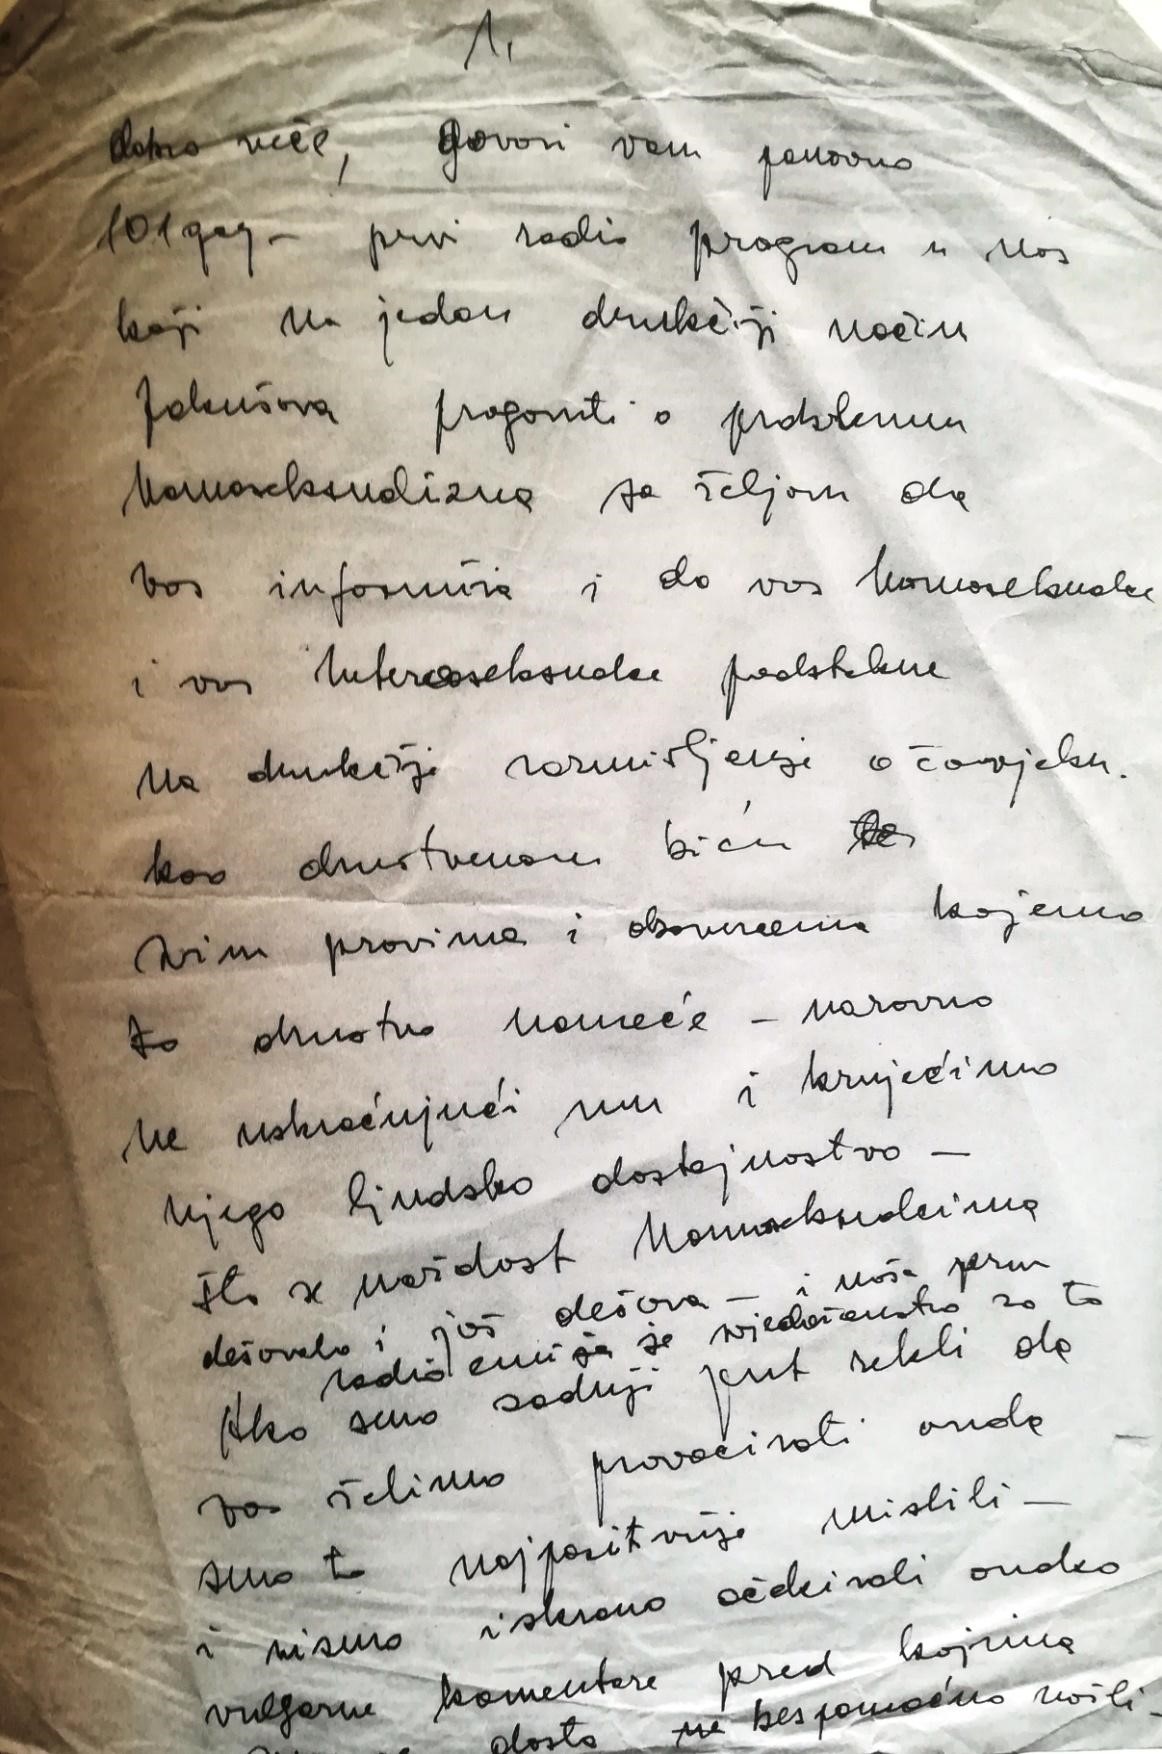 1.
dobro veče, govori vam ponovno
101 gay – prvi radio program u nas
koji na jedan drukčiji način
pokušava progovoriti o problemu
homoseksualizma sa željom da
vas informira i da vas homoseksualce
i vas heteroseksualce podstakne
na drukčije razmišljanje o čovjeku.
kao društvenom biću
svim pravima i obavezama kojemu
to društvo nameće – naravno
ne uskraćujući mu i krnjećimo
njego ljudsko dostojnostvo –
što se nažalost homoseksualcima
dešavalo i još dešava – i naša prva
radio emisija je svjedočanstvo za to
Ako smo zadnji put rekli da
vas želimo provocirati onda
smo to najpozitivnije mislili –
i nismo iskreno očekivali onako
vulgarne komentare pred kojima
dosta bespomoćno našli –